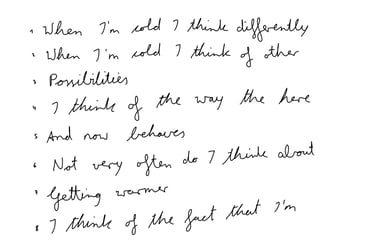 · When I'm cold I think differently
· When I'm cold I think of other
· Possibilities
· I think of the way the here
· And now behaves
· Not very often do I think about
· Getting warmer
· I think of the fact that I'm